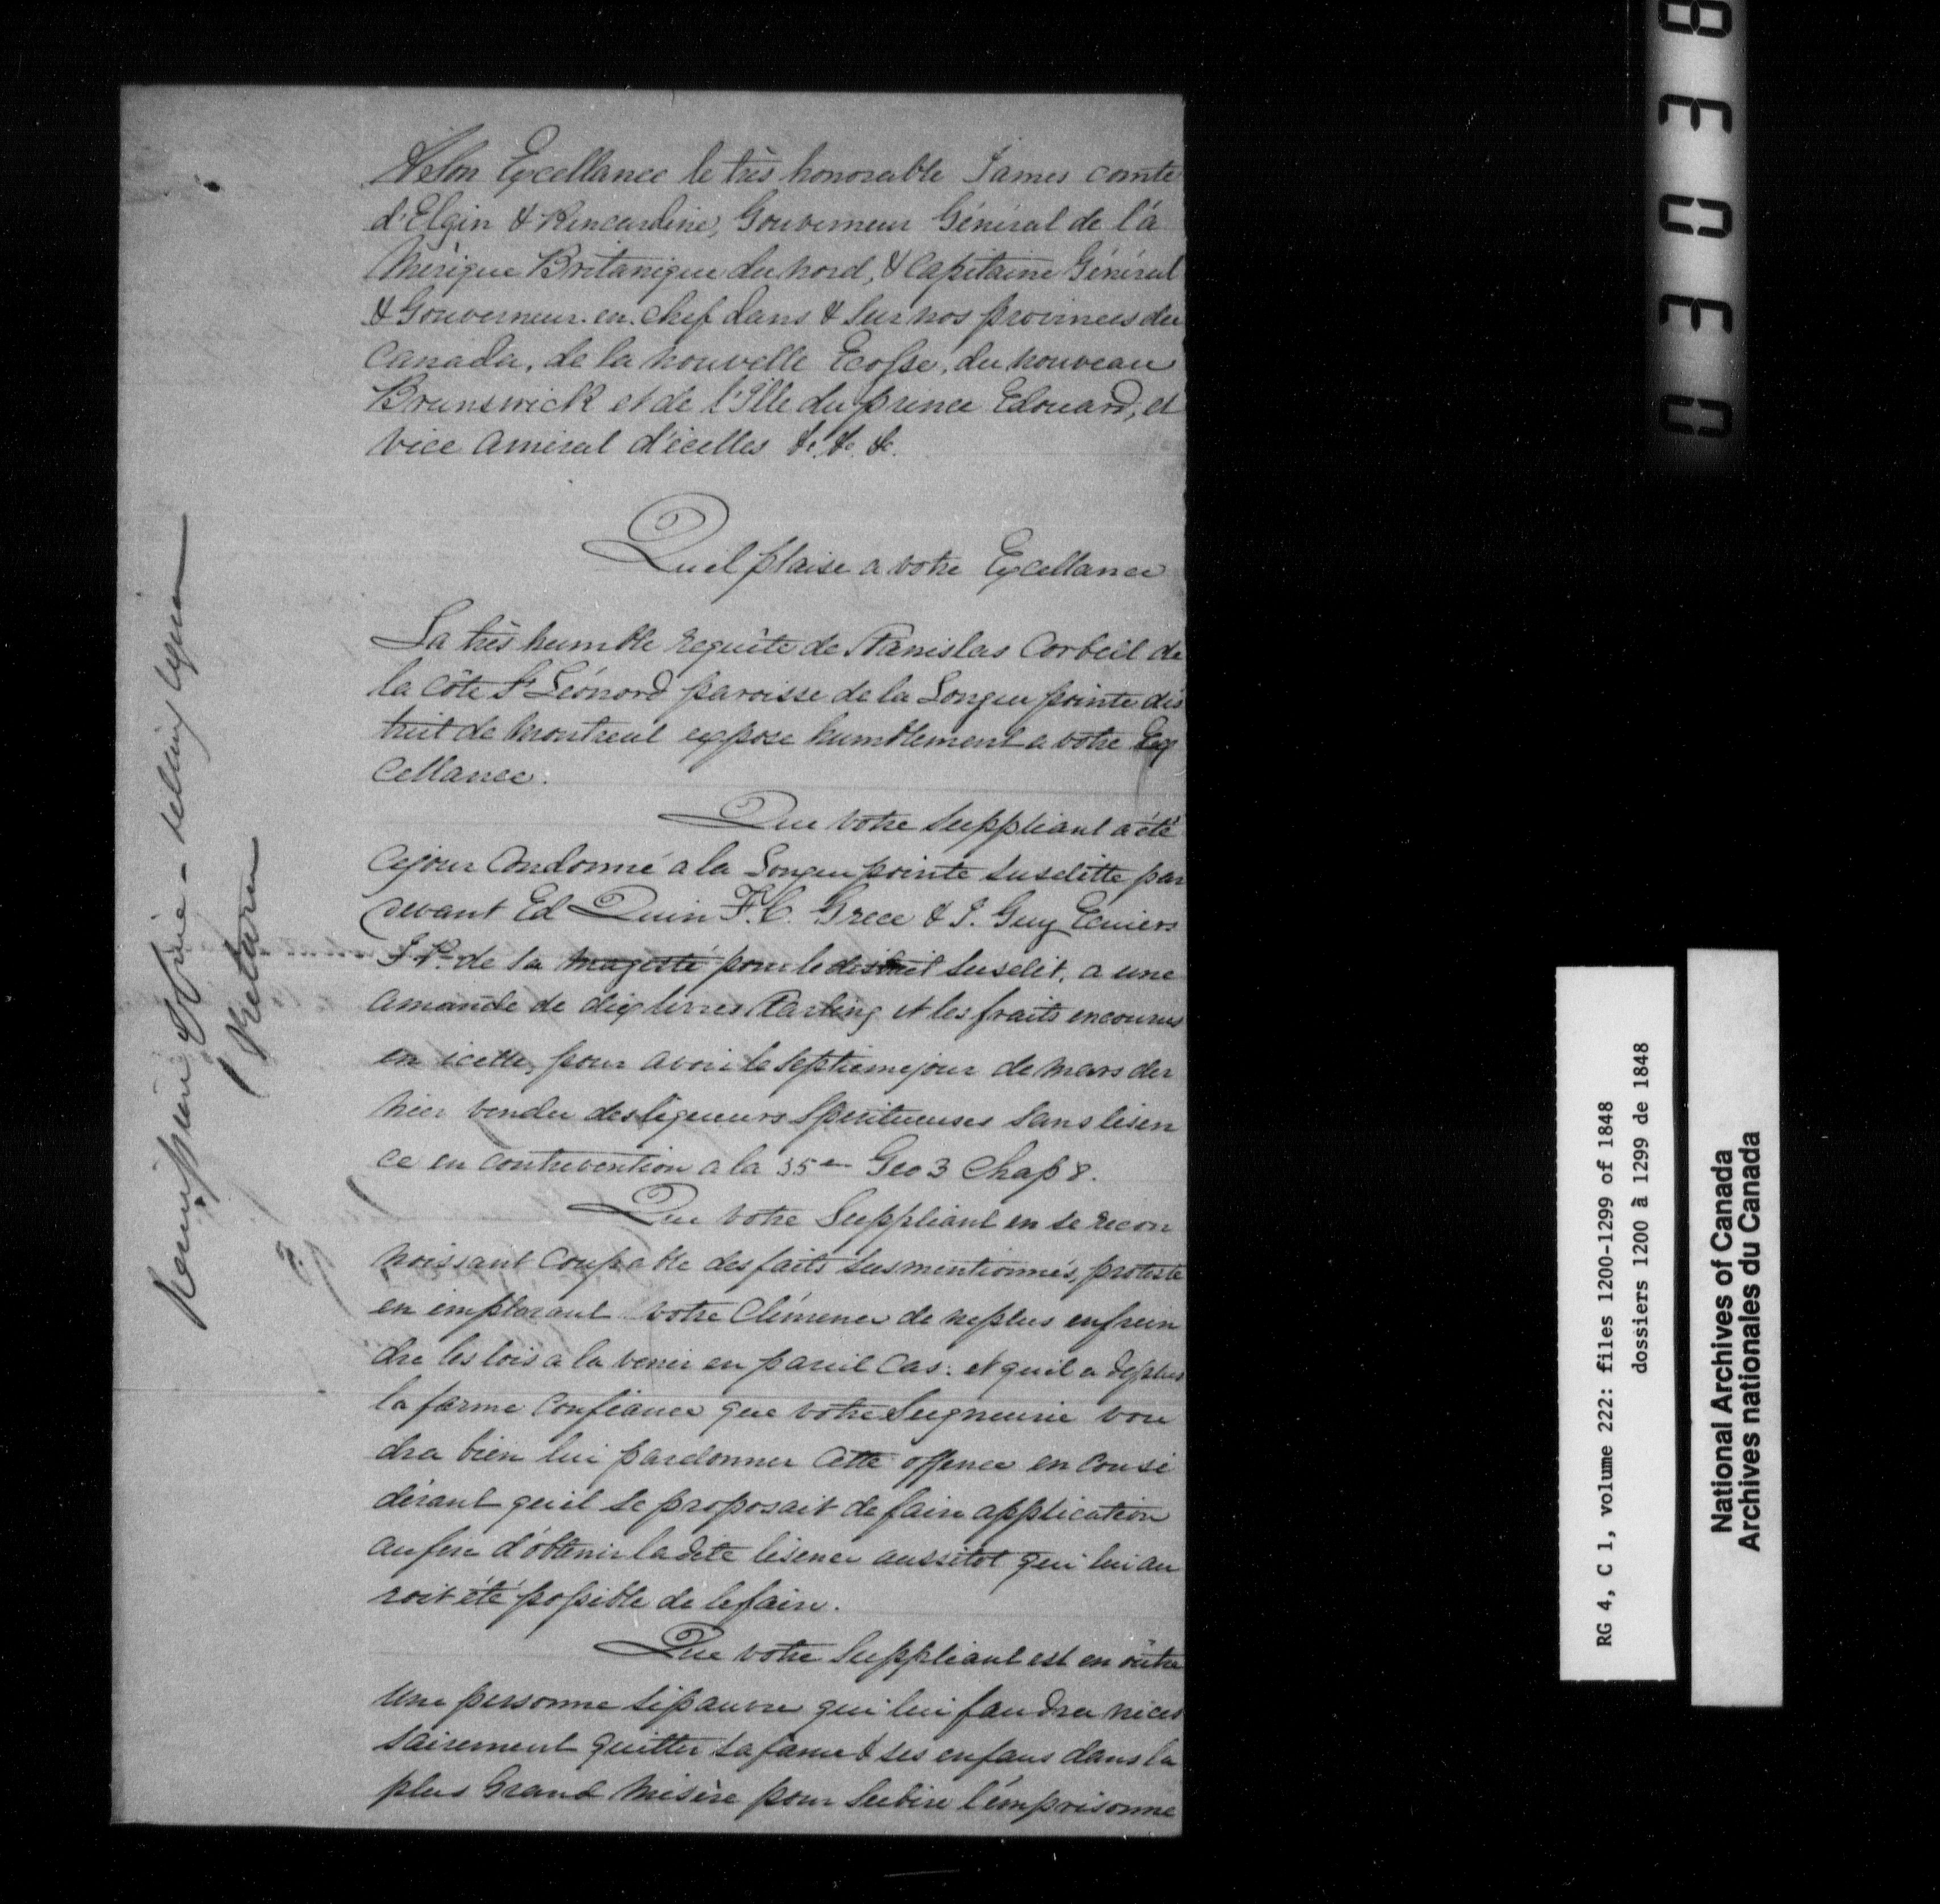 A Son Excellance le très honorable James comte
d'Elgin & Kencardine, Gouverneur Général de l'a
mérique Britanique du nord, & Capitaine Général
& Gouverneur en chef dans & sur nos provinces du
Canada, de la nouvelle Ecosse, du nouveau
Brunswick et de l'Ille du prince Edouard, et
vice amiral d'icelles &c. &c. &c.
Qu'il plaise a votre Excellance
La très humble requête de Stanislas Corbeil de
la Côte St Léonord paroisse de la Longue pointe dis
trict de Montreal expose humblement a votre Ex
cellance.
Que votre Suppliant a été
cejour Condonné a la Longue pointe susditte par
devant Ed Quin F. C. Grece & J. Guy Ecuiers
J P. de sa magesté pour le district susdit, a une
amande de dix livres starling et les fraits encourus
en icelle, pour avoir le septiemejour de mars der
nier vendu des liqueurs spiritueuses sans lisen
ce en contrevention a la 35em Geo 3 Chap 8.
Que votre Suppliant en se recon
noissant coupable des faits susmentionnés, proteste
en implorant votre Clémence de neplus enfrein
dre les lois a la venir en pareil cas: et qu'il a deplus
la farme confiance que votre Seigneurie vou
dra bien lui pardonner cette offence en consi
dérant qu'il se proposait de faire application
au fin d'obtenir la dite lisence aussitot qui lui au
roit été possible de lefaire.
Que votre Suppliant est en outre
une personne si pauvre qui lui faudra néces
sairement quitter sa famme & ses enfans dans la
plus Grand misère pour subire l'emprisonne
Remission of fine - selling liquor
Return
03038
RG 4, C 1, volume 222: files 1200-1299 of 1848
dossiers 1200 à 1299 de 1848
National Archives of Canada
Archives nationales du Canada